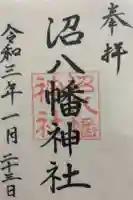 奉拝
沼八幡神社
令和三年一月二十三日